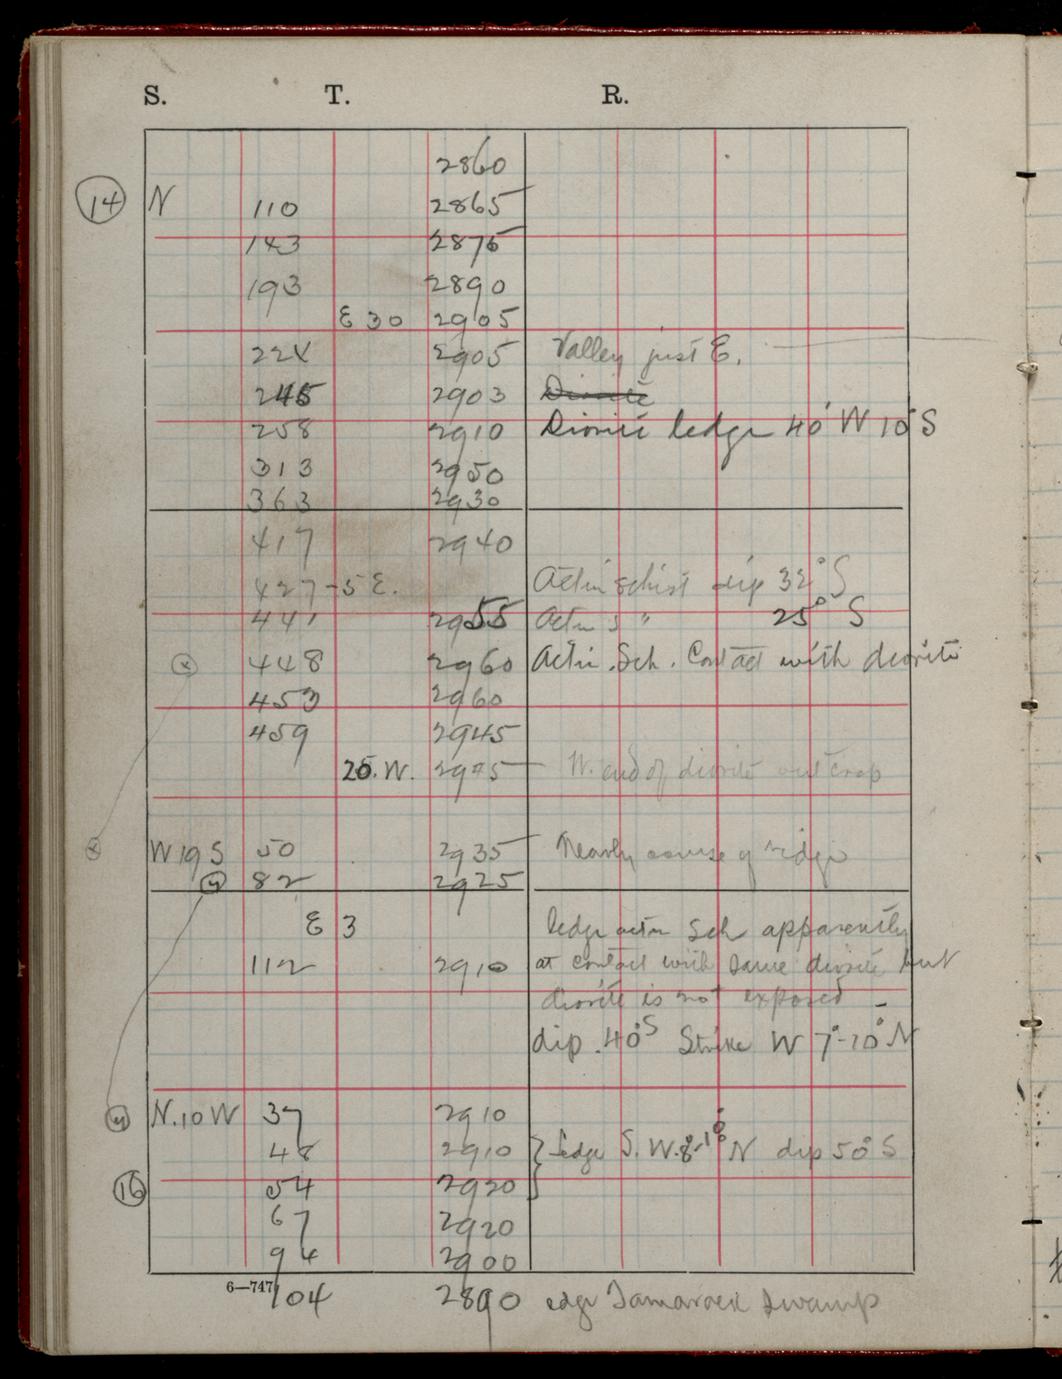 S. T. R.
2860
14 N 110 2865
143 2875
193 2890
E 30 2905
224 2905 Valley just E.
245 2903 Diorite
258 2910 Diorite ledge 40' W 10° S
313 2950
363 2930
417 2940
427-5 E. Actin schist dip 32° S
441 2955 Actin s " 25° S
x 448 2960 Actin. Sch. Contact with diorite
453 2960
459 2945
25. W. 2945 W. end of diorite outcrop
x W 19 S 50 2935 Nearly course of ridge
y 82 2925
E 3 ledge actin Sch apparently
112 2910 at contact with same diorite but
diorite is not exposed -
dip. 40° S Strike W 7°-10° N
y N. 10 W 37 2910
48 2910 } Ledge S. W. 8-10° N dip 50° S
16 54 2920
67 2920
94 2900
6—747
104 2890 edge Tamarack Swamp